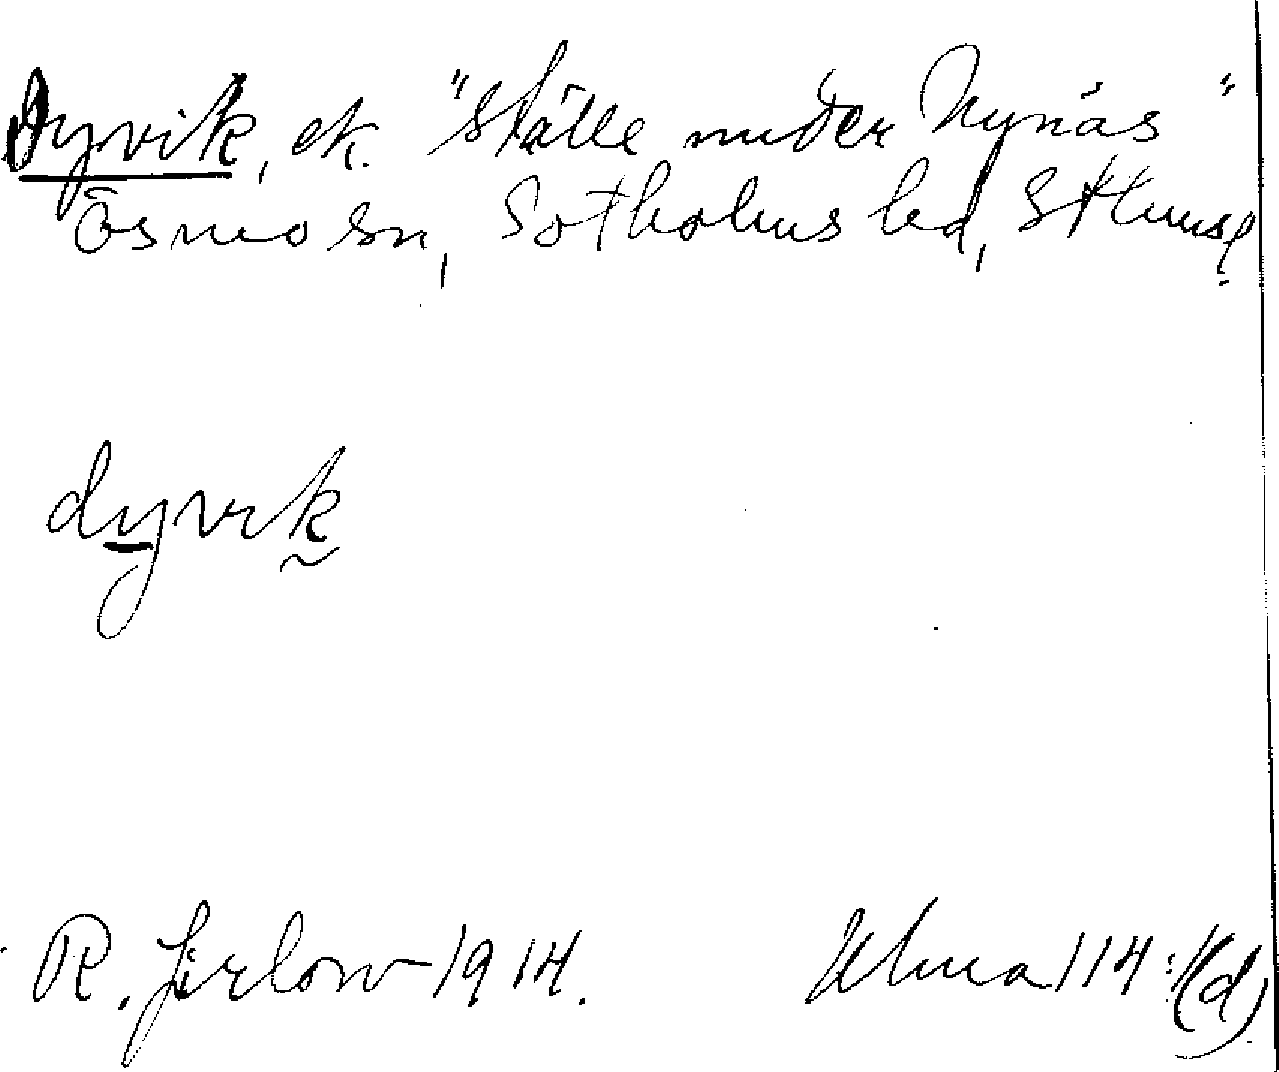 Dyvik, ek. "ställe under Nynäs"
Ösmo sn, Sotholms hd, Sthms l.
dyvik
R. Jirlow 1914.
Ulma 114:1(d)